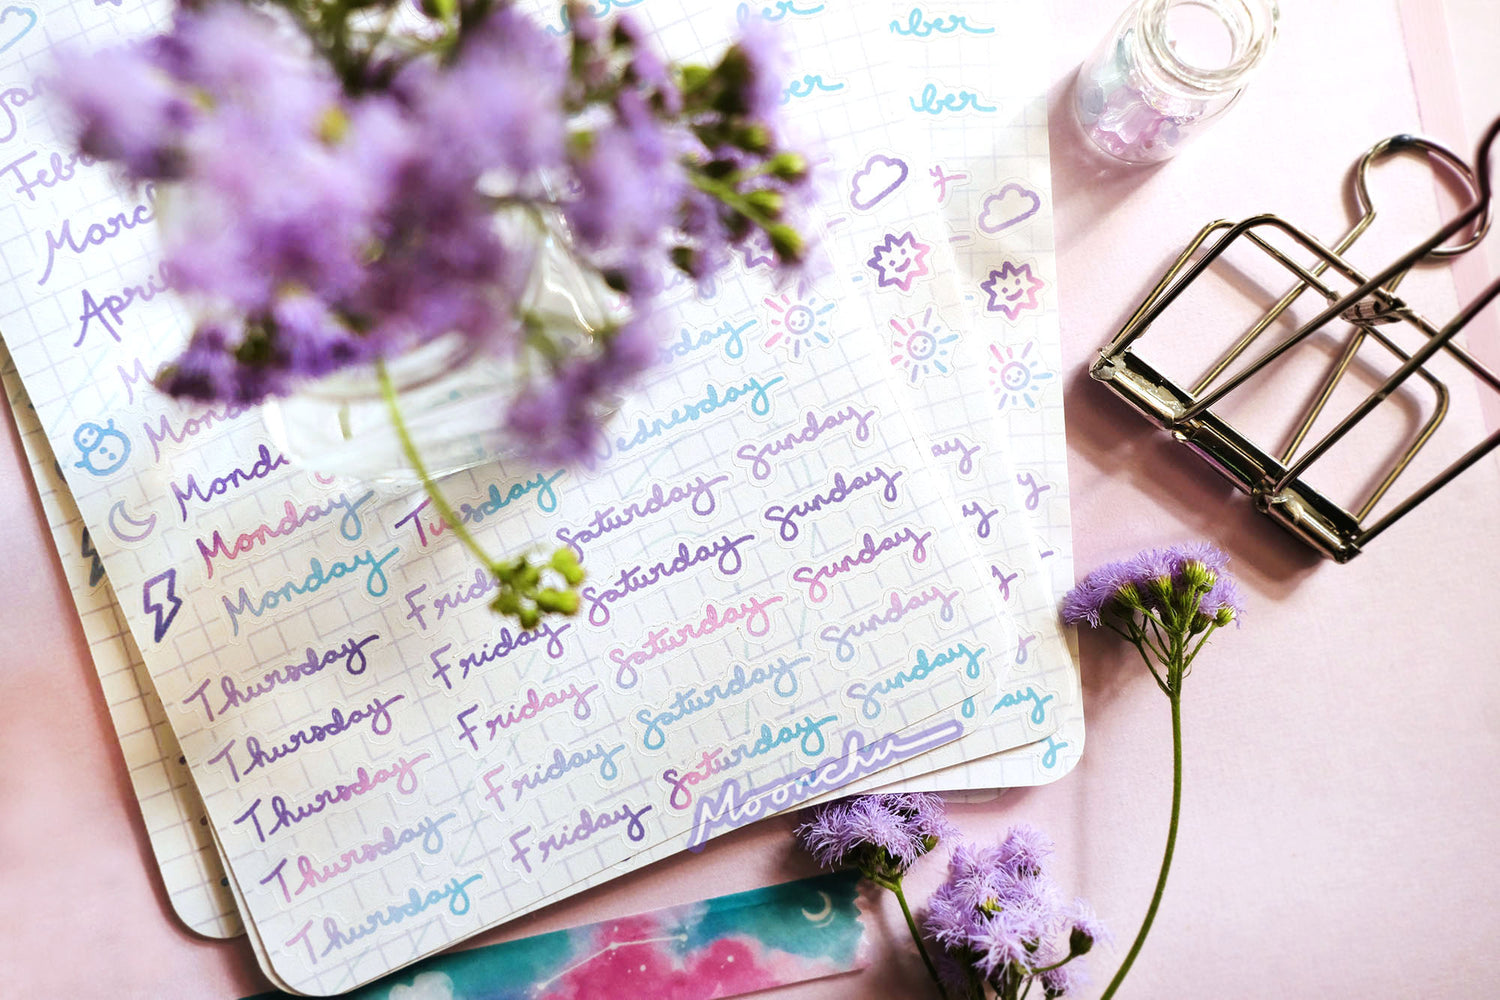 March
April
Monday
Monday
Monday
Monday Tuesday Wednesday
Thursday Friday Saturday Sunday
Thursday Friday Saturday Sunday
Thursday Friday Saturday Sunday
Thursday Friday Saturday Sunday
Thursday Friday Saturday Sunday
Moonchu